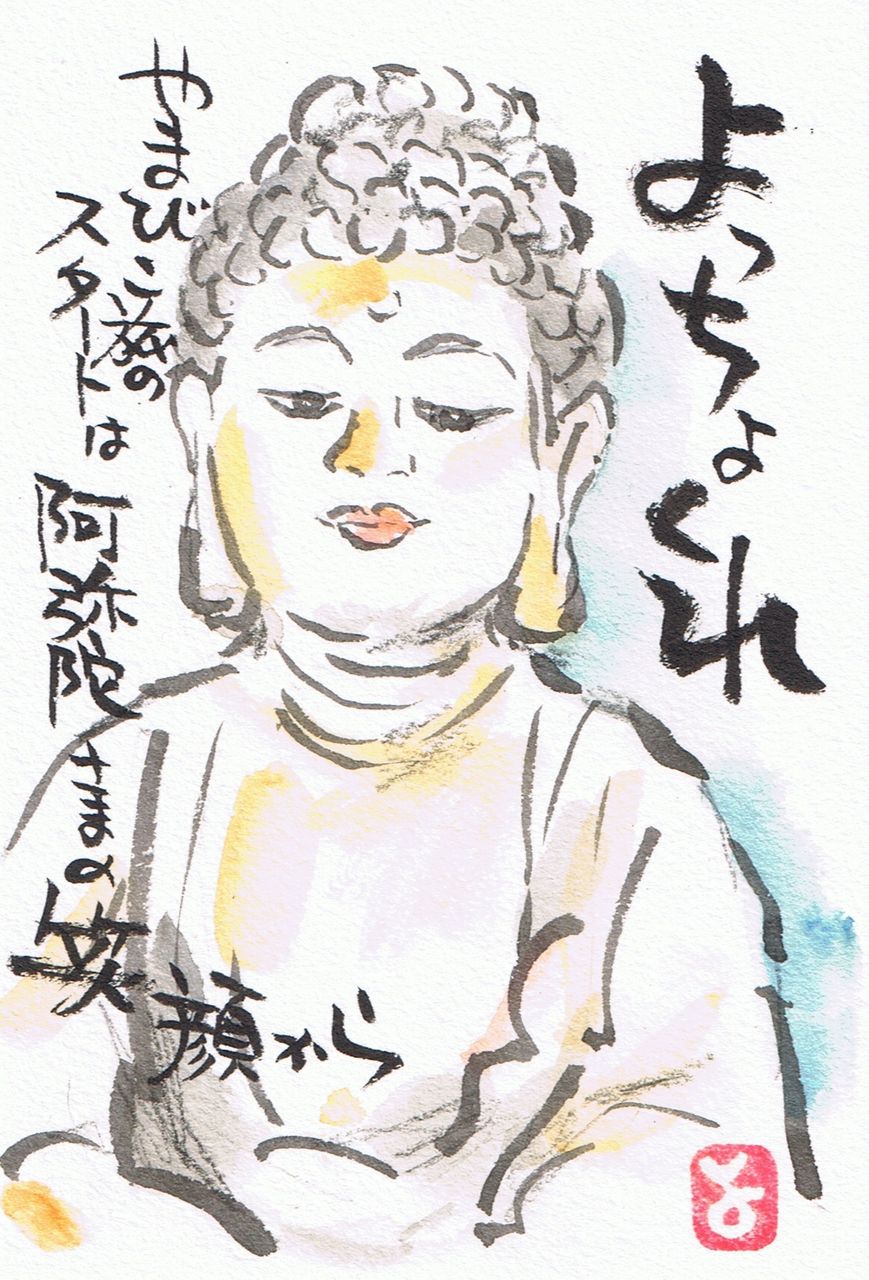 よっちょくれ
やまびこの
スタートは
阿弥陀さまの笑
顔から